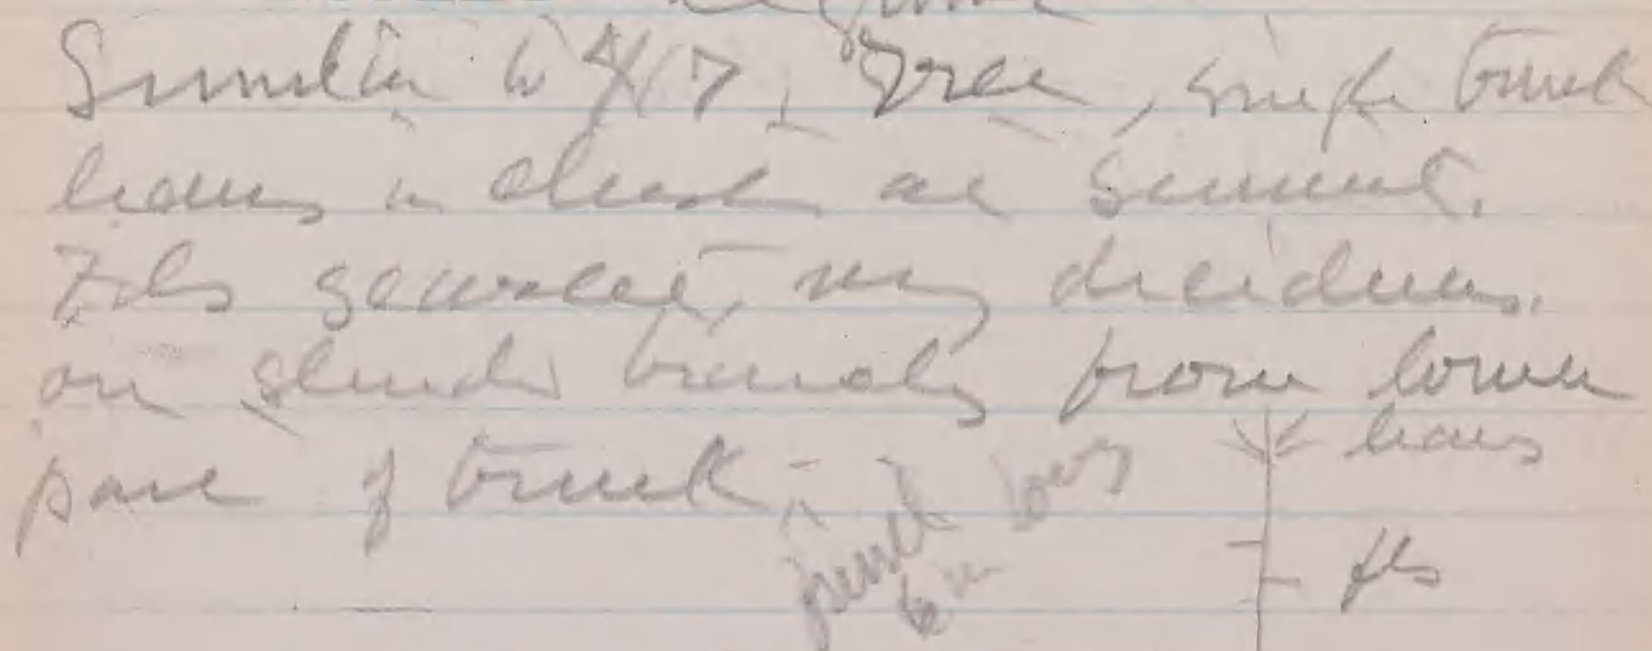 Similar to 417. Tree, single trunk
leaves in cluster at summit.
Fls scarlet, very deciduous.
on slender branches from lower
part of trunk -
leaves
fls